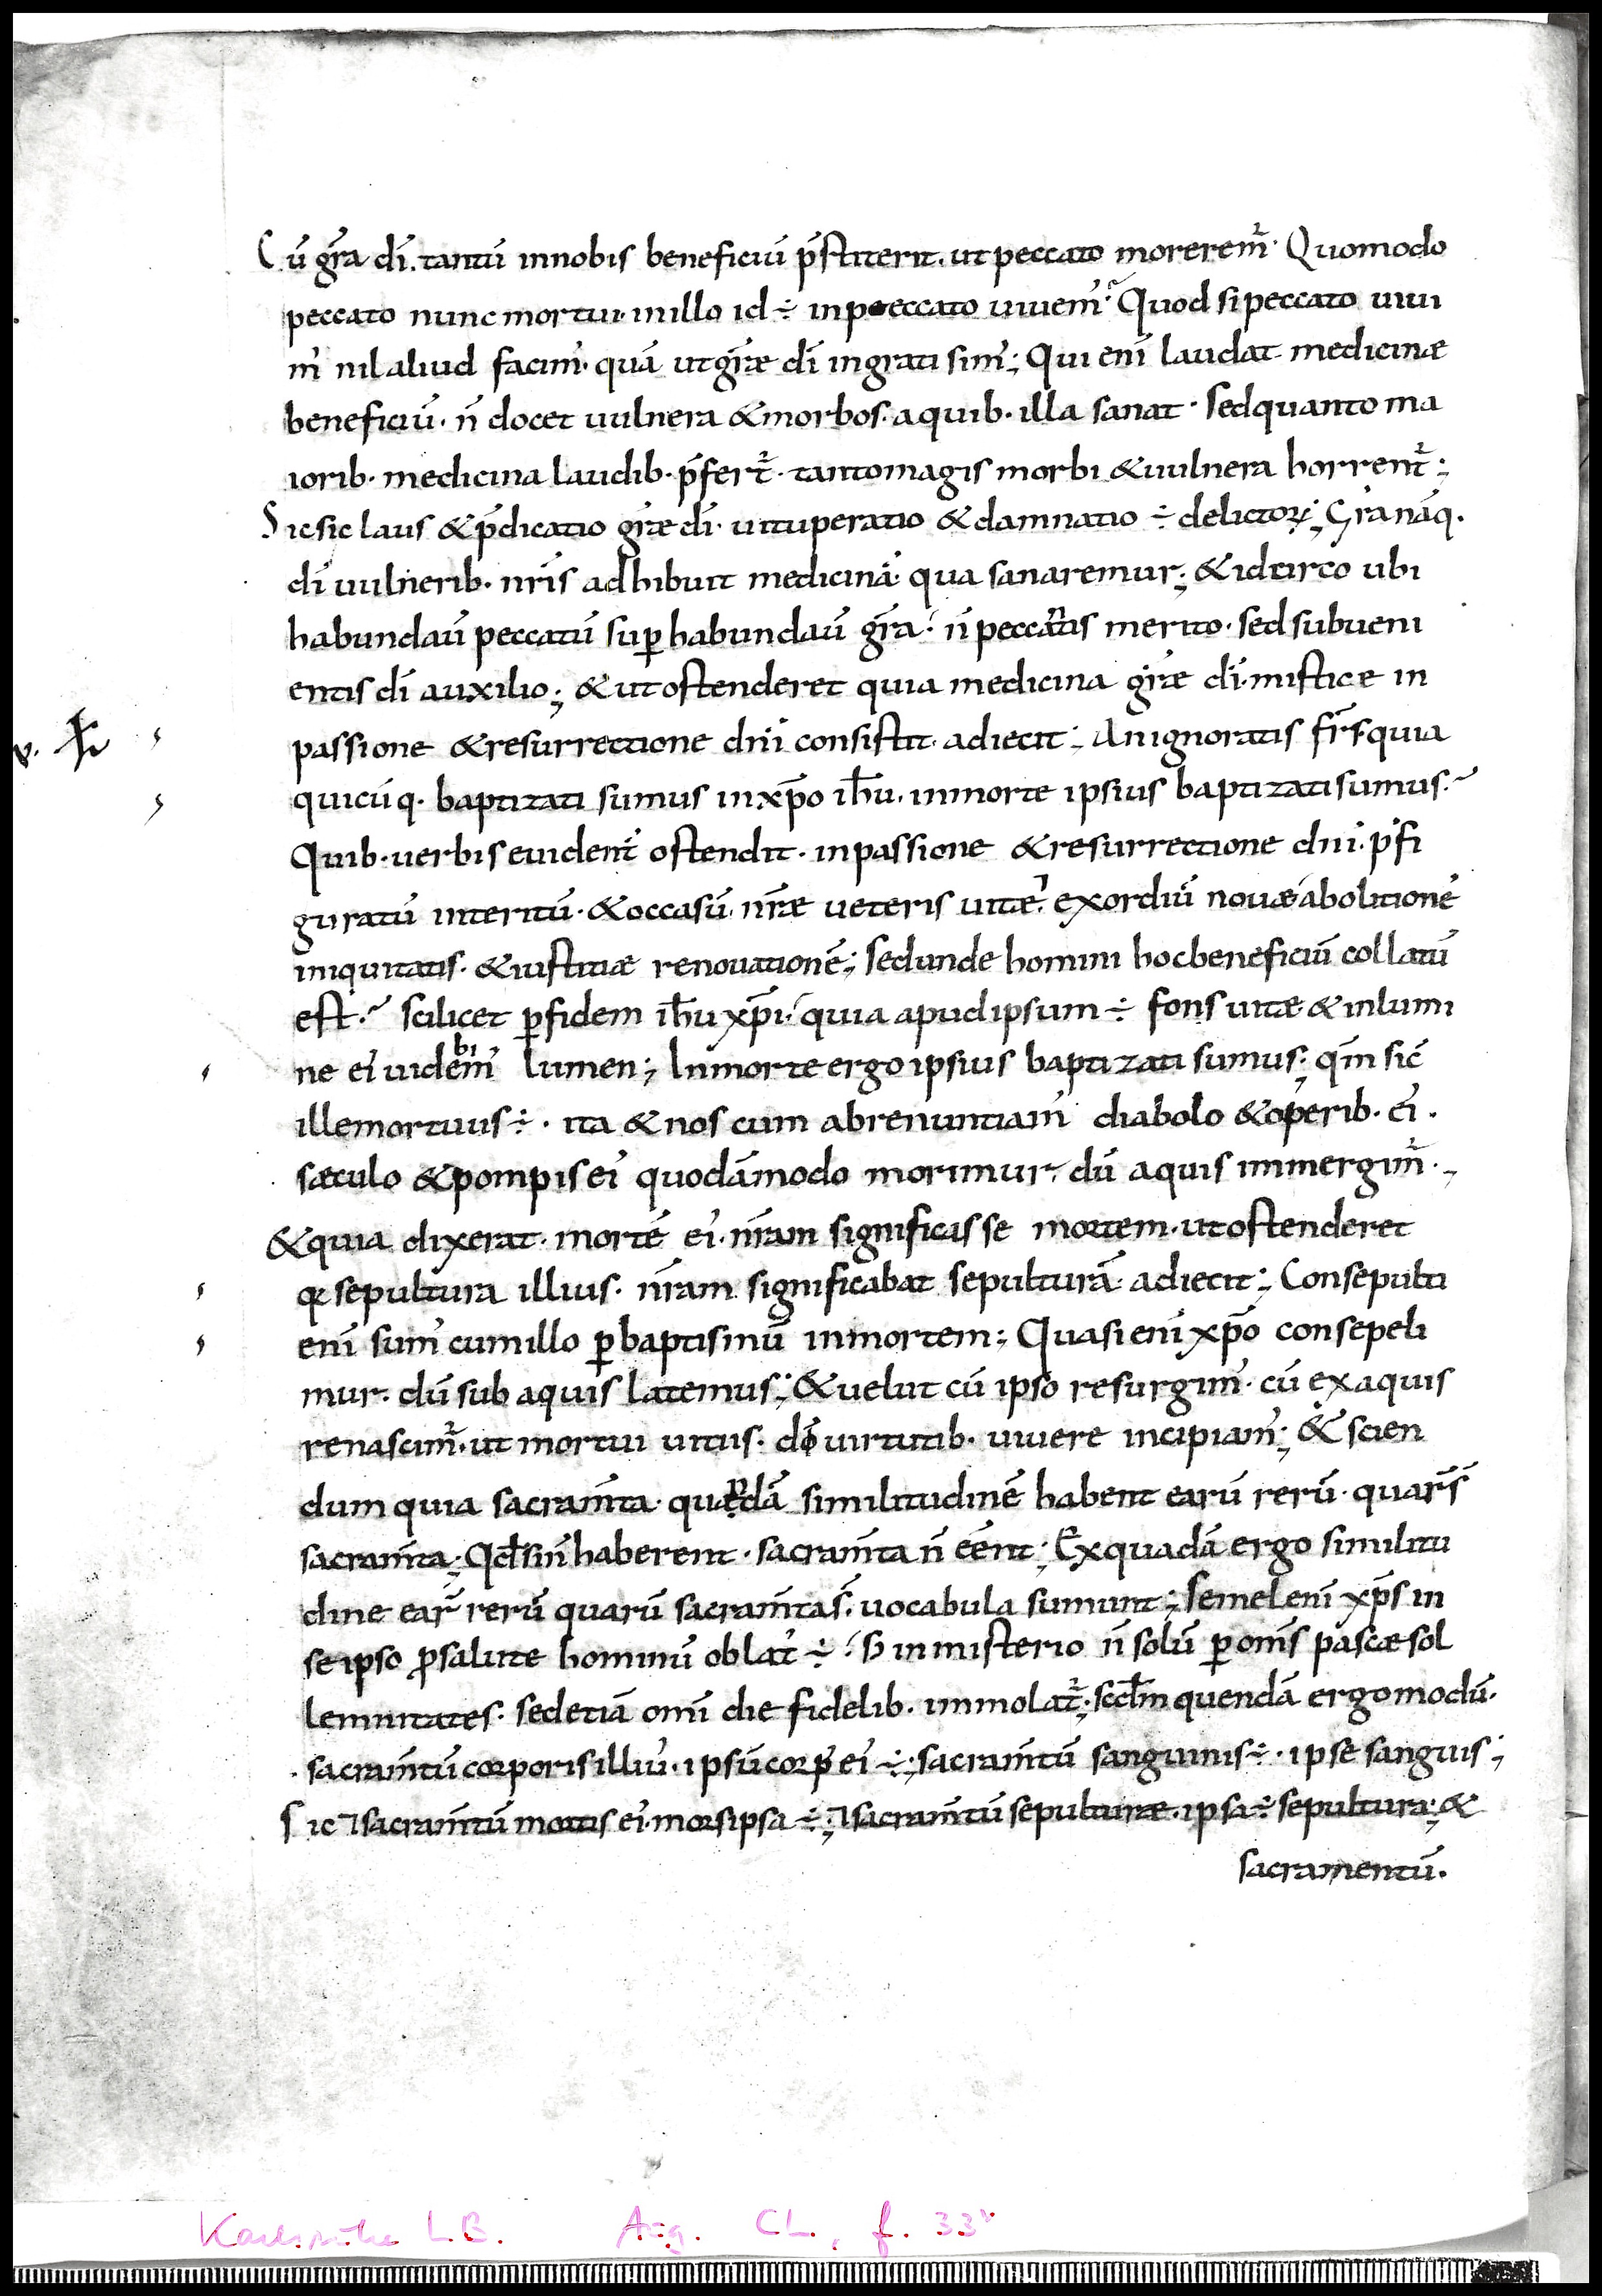 Cū gr̄a dī. tantū innobis beneficiū p̄stiterit. ut peccato moreremr̄. Quomodo
peccato nunc mortui. inillo id ÷ inpeccato uiuem᾽? Quod sipeccato uiui
m᾽ nil aliud facim᾽. quā utgr̄ae dī ingrati sim᾽; Qui enī laudat medicinae
beneficiū. n̄ docet uulnera &morbos. aquib· illa sanat· sedquanto ma
iorib· medicina laudib· p̄fert᷑· tantomagis morbi &uulnera horrent᷑;
Sicsic laus &p̄dicatio gr̄ae dī. uituperatio &damnatio ÷ delictoꝝ; Gr̄a nāq·
dī uulnerib· nr̄is adhibuit medicinā qua sanaremur; &idcirco ubi
habundau̅ peccatū suꝑhabundau̅ gr̄a. n̄ peccantis merito. sedsubueni
entis dī auxilio; &utostenderet quia medicina gr̄ae dī. misticae in
passione &resurrectione dn̄i consistit. adiecit; Anignoratis fr̄s. quia
quicūq· baptizati sumus inxp̄o ih̄u. inmorte ipsius baptizatisumus?
Quib· uerbis euident᷑ ostendit. inpassione &resurrectione dn̄i. p̄fi
guratū interitū. &occasū nr̄ae ueteris uitae. ⁊ exordiū nouae abolitionē
iniquitatis. &iustitiae renouationē; sedunde homini hocbeneficiū collatū
est? scilicet ꝑfidem ih̄u xp̄i. quia apudipsum ÷ fons uitae &inlumi
ne ei᾽ uidebim᾽ lumen; Inmorte ergo ipsius baptizati sumus; qm̄ sic̄
illemortuus ÷. ita &nos cum abrenuntiam᾽ diabolo &operib· ei᾽.
saeculo &pompis ei᾽ quodāmodo morimur. dū aquis immergimr̄.;
&quia dixerat. mortē ei᾽. nr̄am significasse mortem. utostenderet
qđ sepultura illius. nr̄am significabat sepulturā adiecit; Consepulti
enī sum᾽ cumillo ꝑbaptismū inmortem; Quasi enī xp̄o consepeli
mur. dū sub aquis latemus; &uelut cū ipso resurgim᾽. cū exaquis
renascimr̄. ut mortui uitiis. dō uirtutib· uiuere incipiam᾽; & scien
dum quia sacram̄ta quandā similitudinē habent earū rerū. quarū s̄
sacram̄ta; Qđ sin̄ haberent. sacram̄ta n̄ eēnt; Exquadā ergo similitu
dine ear̄ rerū quarū sacram̄ta s̄. uocabula sumunt; Semel enī xp̄s in
seipso ꝓsalute hominū oblat᾽ ÷. sꝫ inmisterio n̄ solū ꝑ om̄s pascae sol
lemnitates. sedetiā omī die fidelib· immolat᷑; scdm̄ quendā ergomodū.
sacram̄tū corporis illiu᾽. ipsū corp᾽ ei᾽ ÷; sacram̄tū sanguinis ÷. ipse sanguis;
Sic ⁊ sacram̄tū mortis ei᾽. morsipsa ÷; ⁊ sacram̄tū sepulturae. ipsa ÷ sepultura; &
sacramentū.
Karlsruhe LB. Aug. CL, f. 33v